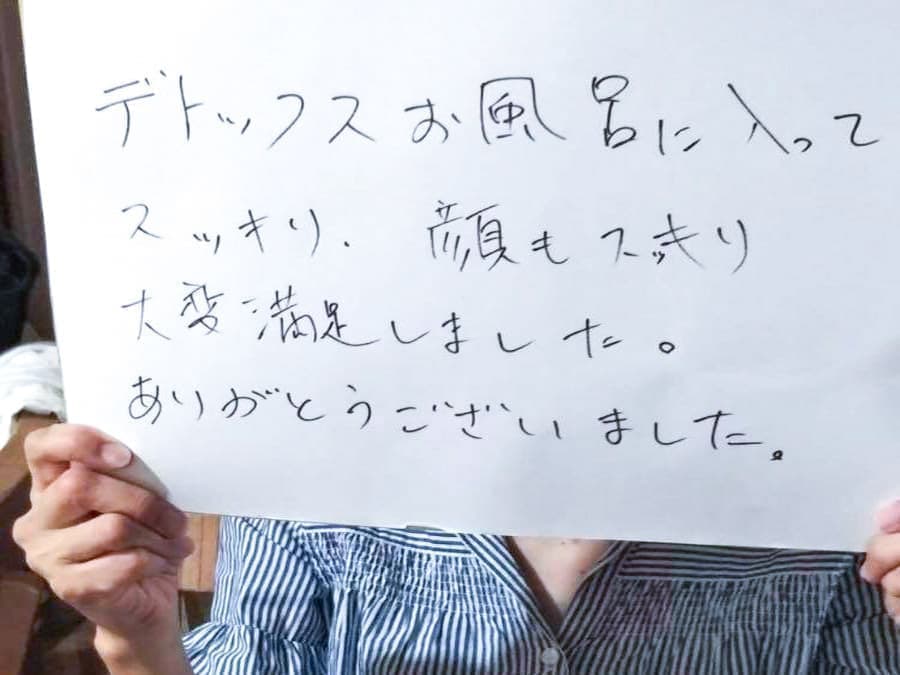 デトックスお風呂に入って
スッキリ、顔もスッキリ
大変満足しました。
ありがとうございました。